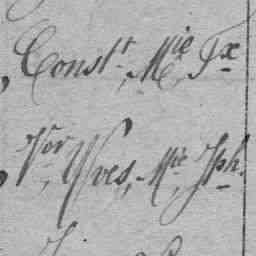 , Const.t, M.ie Fx
, V.or, Yves, M.ie, Jph.